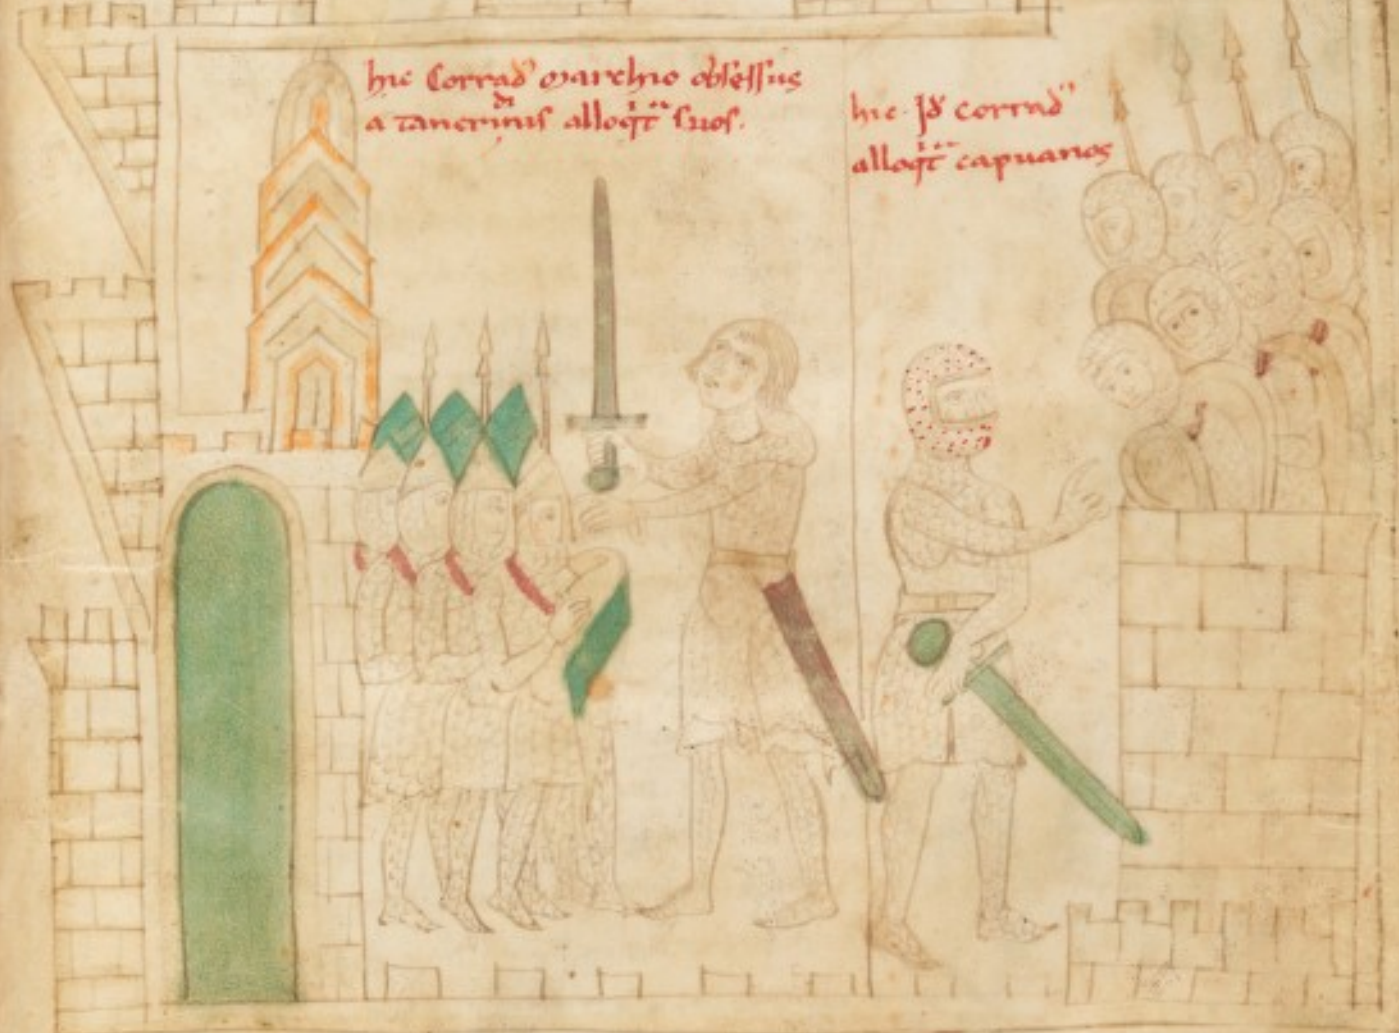 hic Corrad' marchio obsessus
a tancridinis alloq̄t suos.
hic Id' corrad'
alloq̄t capuanos